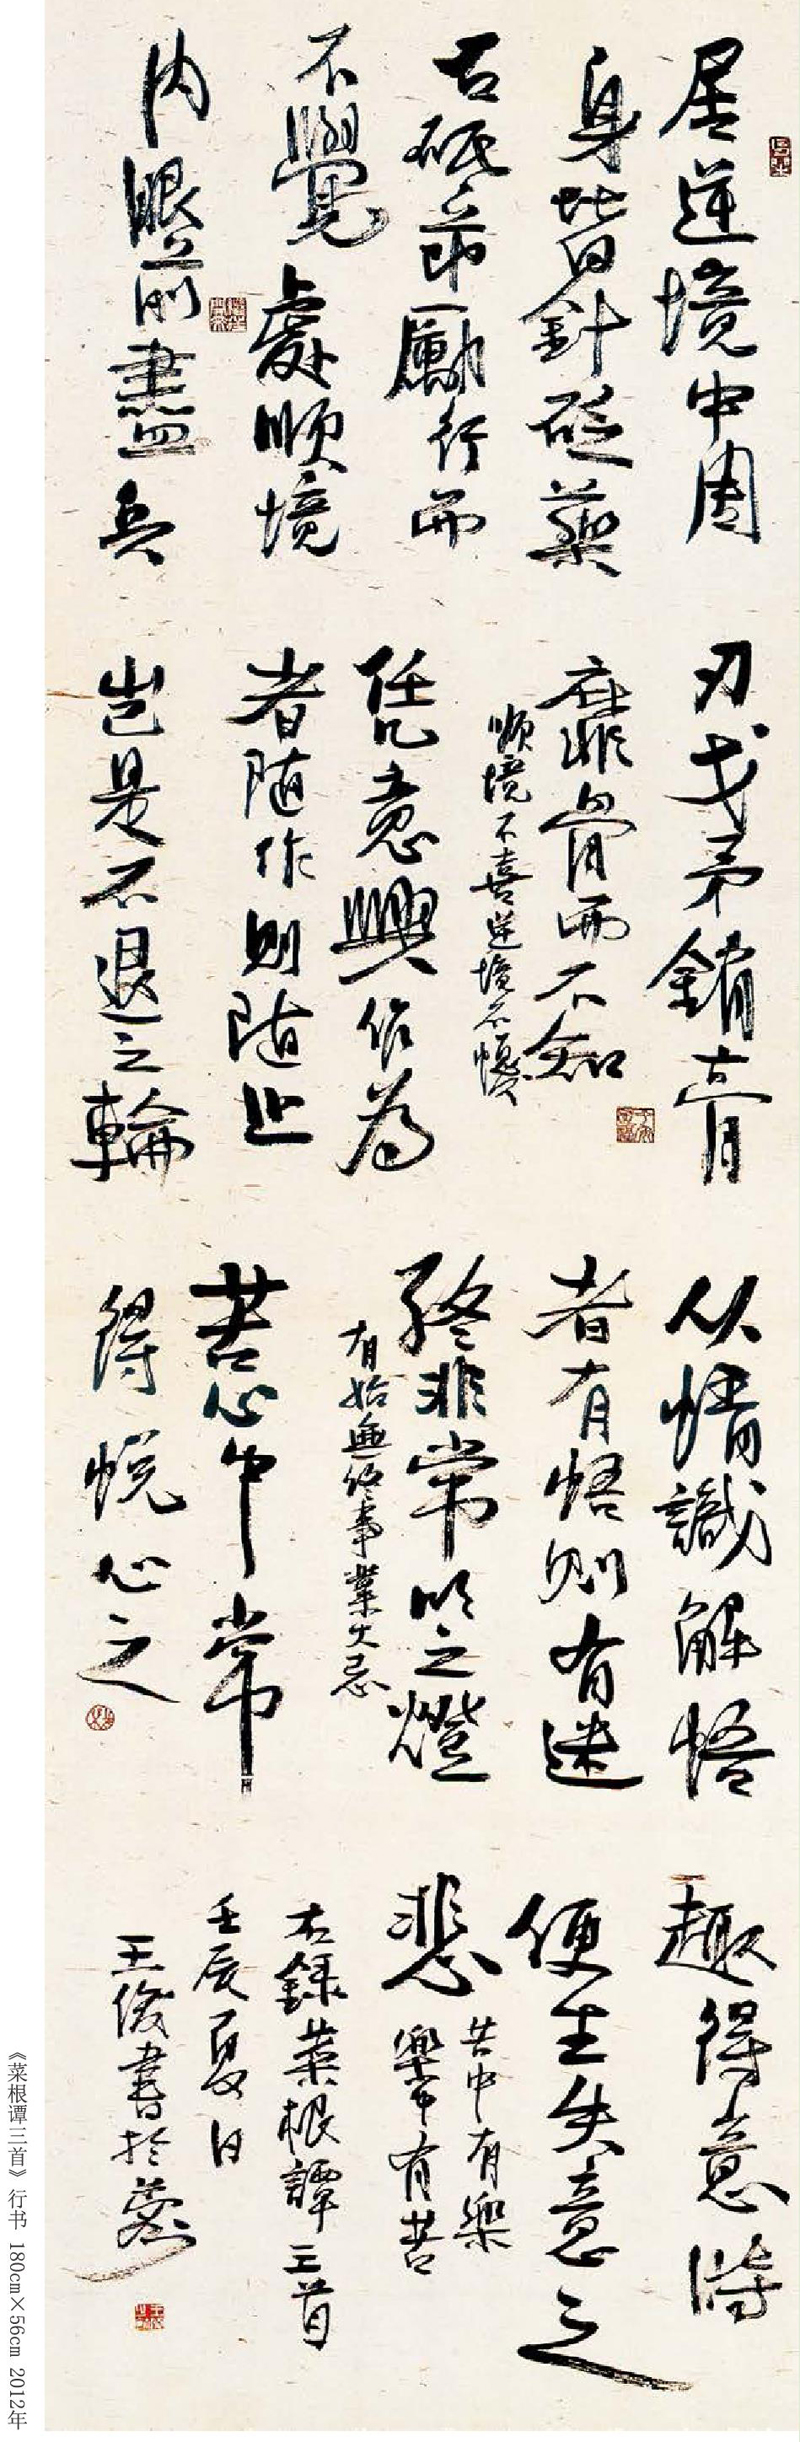 居逆境中周
身皆針砭藥
石砥節勵行而
不覺處順境
内眼前盡兵
刃戈矛銷膏
靡骨而不知
順境不喜逆境不懮
凭意興作為
者随作則随止
豈是不退之輪
从情識解悟
者有悟則有迷
終非常明之燈
有始無終事業大忌
苦心中常
得悅心之
趣得意時
便生失意之
悲
苦中有樂
樂中有苦
右録菜根譚三首
壬辰夏日
王俊書於
《菜根谭三首》行书 180cm×56cm 2012年